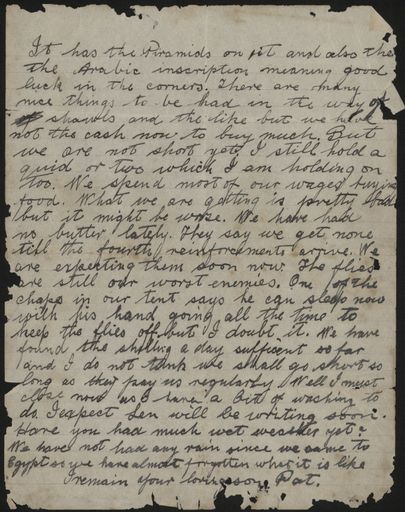 It has the Piramids on it and also the
the Arabic inscription meaning good
luck in the corners. There are many
nice things to be had in the way of
shawls and the like but we have
not the cash now to buy much. But
we are not short yet, I still hold a
quid or two which I am holding on
too. We spend most of our wages buying
food. What we are getting is pretty bad
but it might be worse. We have had
no butter lately. They say we get none
till the fourth reinforcements arrive. We
are expecting them soon now. The flies
are still our worst enemies. One of the
chaps in our tent says he can sleep now
with his hand going all the time to
keep the flies off but I doubt it. We have
found the shilling a day sufficent so far
and I do not think we shall go short so
long as they pay us regularly. Well I must
close now as I have a bit of washing to
do. I expect Len will be writing soon.
Have you had much wet weather yet?
We have not had any rain since we came to
Egypt so we have almost forgotten what it is like
I remain your loving son Pat.